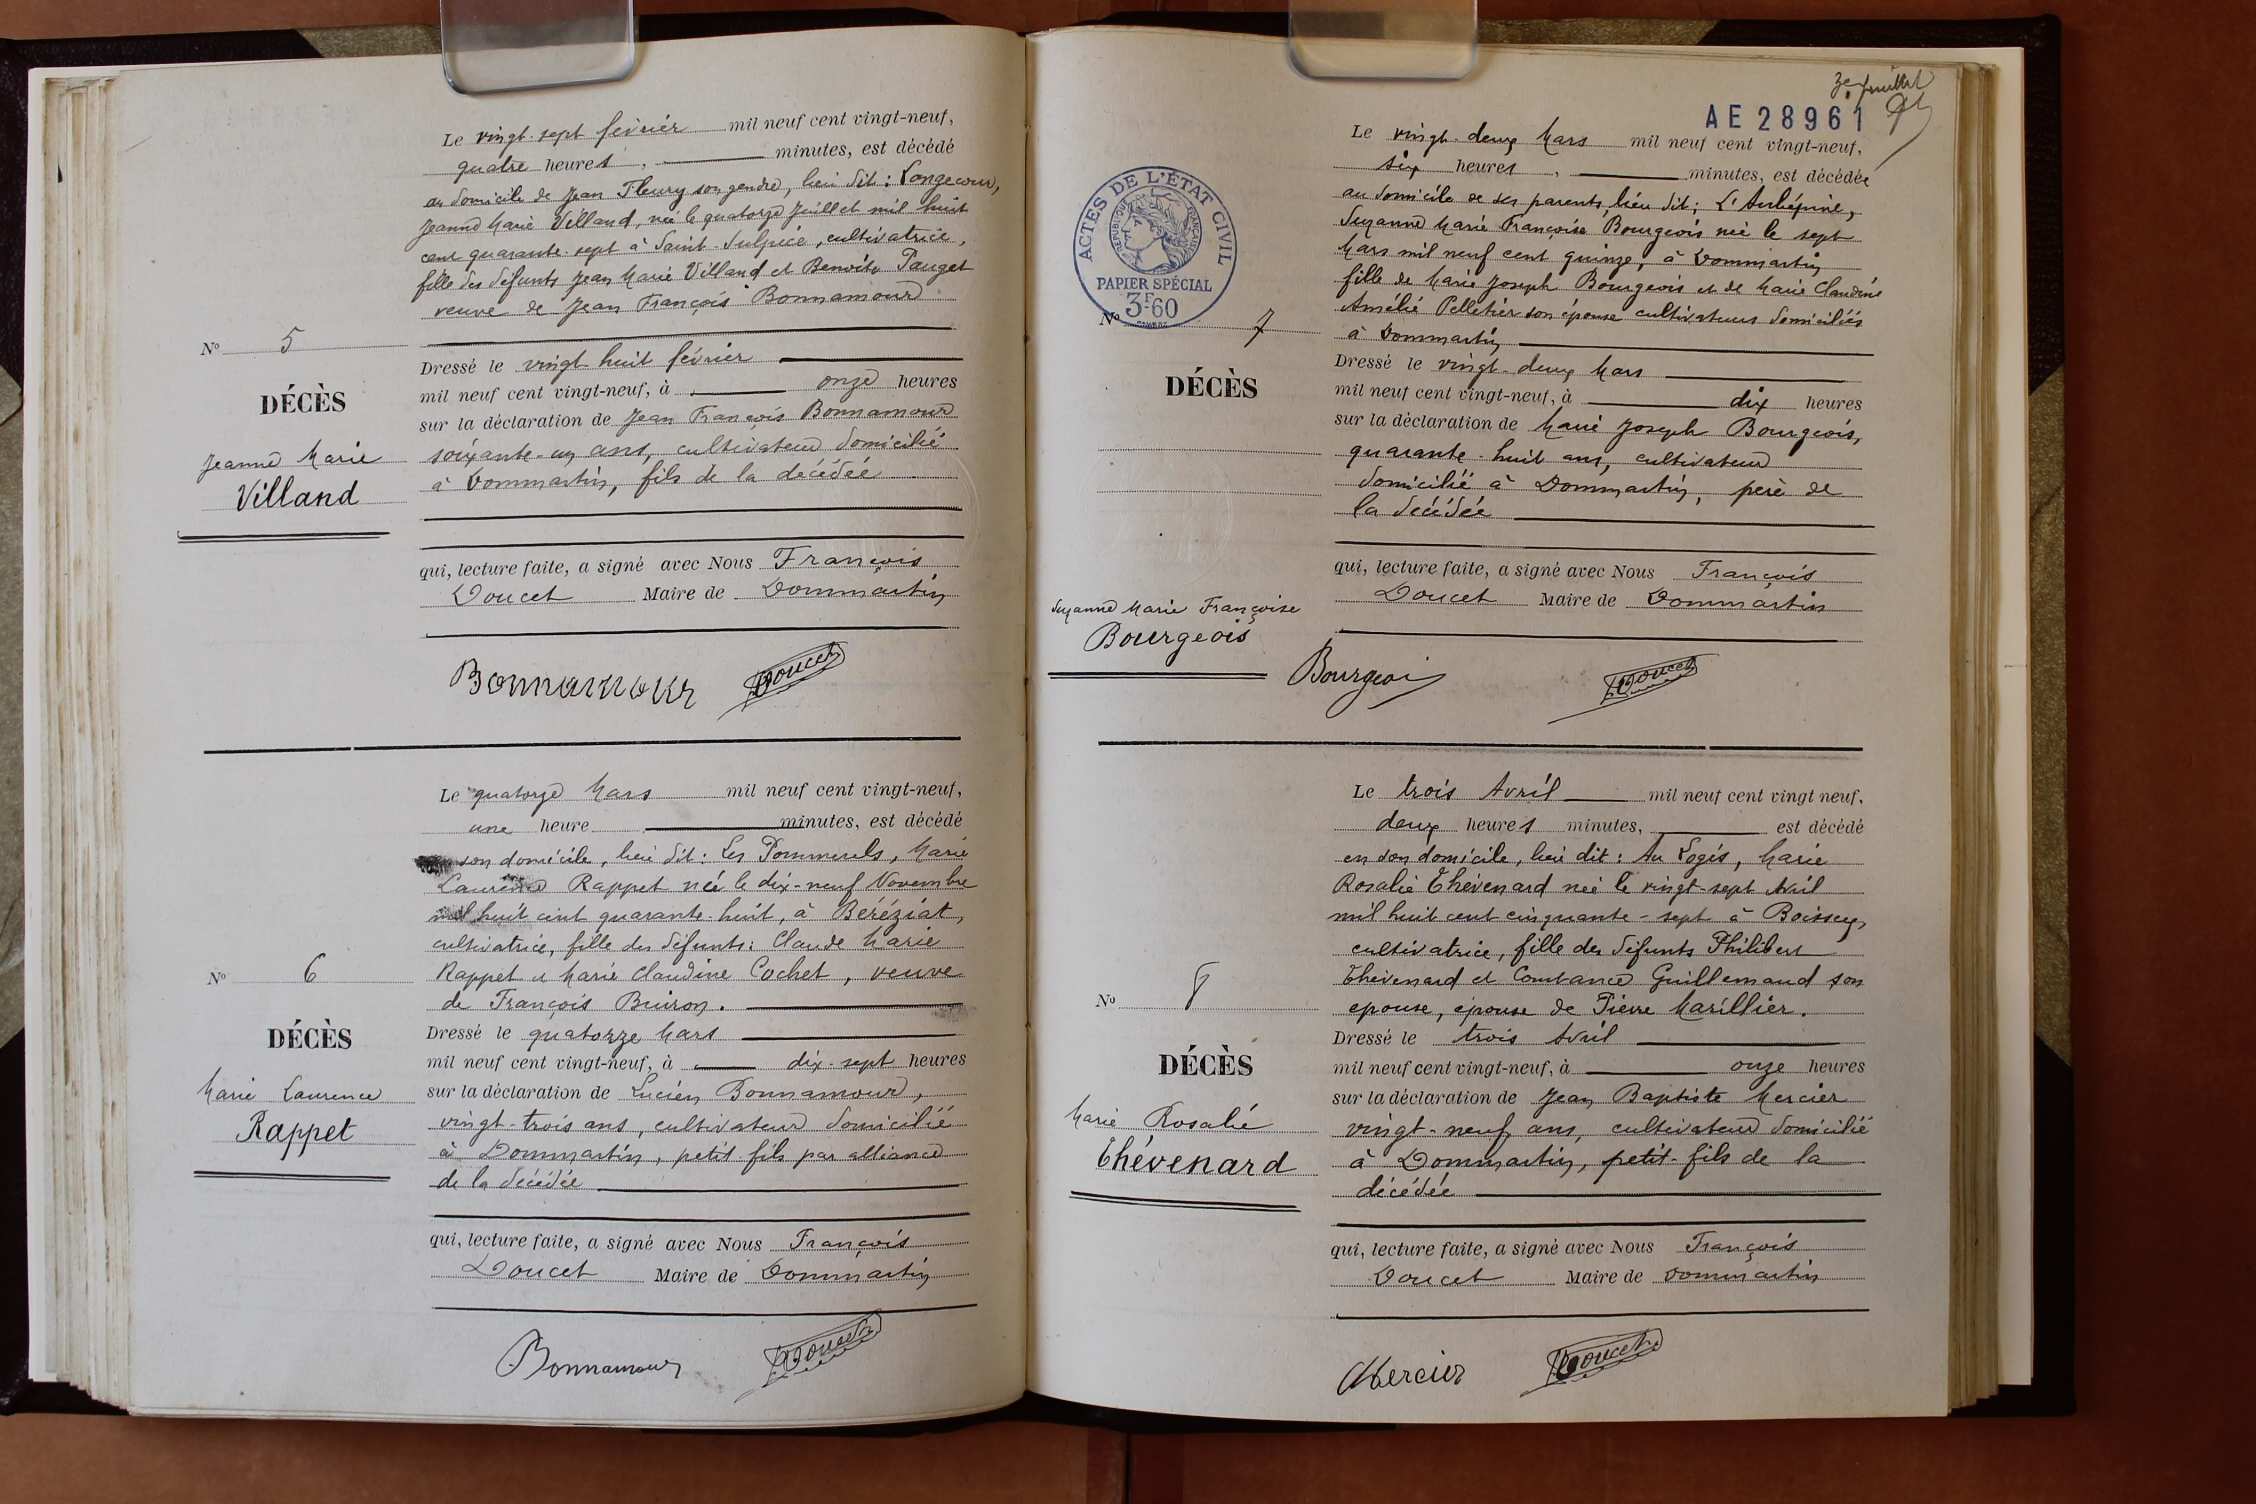 Le vingt-sept février mil neuf cent vingt-neuf,
quatre heures, minutes, est décédé
au domicile de Jean Fleury son gendre, lieu dit : Longecour,
Jeanne Marie Villand, née le quatorze Juillet mil huit
cent quarante-sept à Saint-Sulpice, cultivatrice,
fille des défunts Jean Marie Villand et Benoîte Pauget
veuve de Jean François Bonnamour
Nº 5
DÉCÈS
Jeanne Marie
Villand
Dressé le vingt huit février
mil neuf cent vingt-neuf, à onze heures
sur la déclaration de Jean François Bonnamour
soixante-un ans, cultivateur domicilié
à Dommartin, fils de la décédée
qui, lecture faite, a signé avec Nous François
Doucet Maire de Dommartin
Bonnamour Doucet
Le quatorze Mars mil neuf cent vingt-neuf,
une heure minutes, est décédé
son domicile, lieu dit : Les Pommerels, Marie
Laurence Rappet née le dix-neuf Novembre
mil huit cent quarante-huit, à Béréziat,
cultivatrice, fille des défunts : Claude Marie
Rappet et Marie Claudine Cochet, veuve
de François Buiron.
Nº 6
DÉCÈS
Marie Laurence
Rappet
Dressé le quatorze Mars
mil neuf cent vingt-neuf, à dix-sept heures
sur la déclaration de Lucien Bonnamour,
vingt-trois ans, cultivateur domicilié
à Dommartin, petit-fils par alliance
de la décédée
qui, lecture faite, a signé avec Nous François
Doucet Maire de Dommartin
Bonnamour Doucet
3e feuillet
AE 28961
ACTES DE L'ÉTAT CIVIL
RÉPUBLIQUE FRANÇAISE
PAPIER SPÉCIAL
3F60
Le vingt-deux Mars mil neuf cent vingt-neuf,
six heures, minutes, est décédée
au domicile de ses parents, lieu dit ; L'Aubépine,
Suzanne Marie Françoise Bourgeois née le sept
Mars mil neuf cent quinze, à Dommartin
fille de Marie Joseph Bourgeois et de Marie Claudine
Amélie Pelletier son épouse cultivateurs domiciliés
à Dommartin
Nº 7
DÉCÈS
Suzanne Marie Françoise
Bourgeois
Dressé le vingt-deux Mars
mil neuf cent vingt-neuf, à dix heures
sur la déclaration de Marie Joseph Bourgeois,
quarante-huit ans, cultivateur
domicilié à Dommartin, père de
la décédée
qui, lecture faite, a signé avec Nous François
Doucet Maire de Dommartin
Bourgeois Doucet
Le trois Avril mil neuf cent vingt neuf,
deux heures minutes, est décédé
en son domicile, lieu dit : Au Logis, Marie
Rosalie Thévenard née le vingt-sept Avril
mil huit cent cinquante-sept à Boissey,
cultivatrice, fille des défunts Philibert
Thévenard et Constance Guillemaud son
épouse, épouse de Pierre Marillier.
Nº 8
DÉCÈS
Marie Rosalie
Thévenard
Dressé le trois Avril
mil neuf cent vingt-neuf, à onze heures
sur la déclaration de Jean Baptiste Mercier
vingt-neuf ans, cultivateur domicilié
à Dommartin, petit-fils de la
décédée
qui, lecture faite, a signé avec Nous François
Doucet Maire de Dommartin
Mercier Doucet